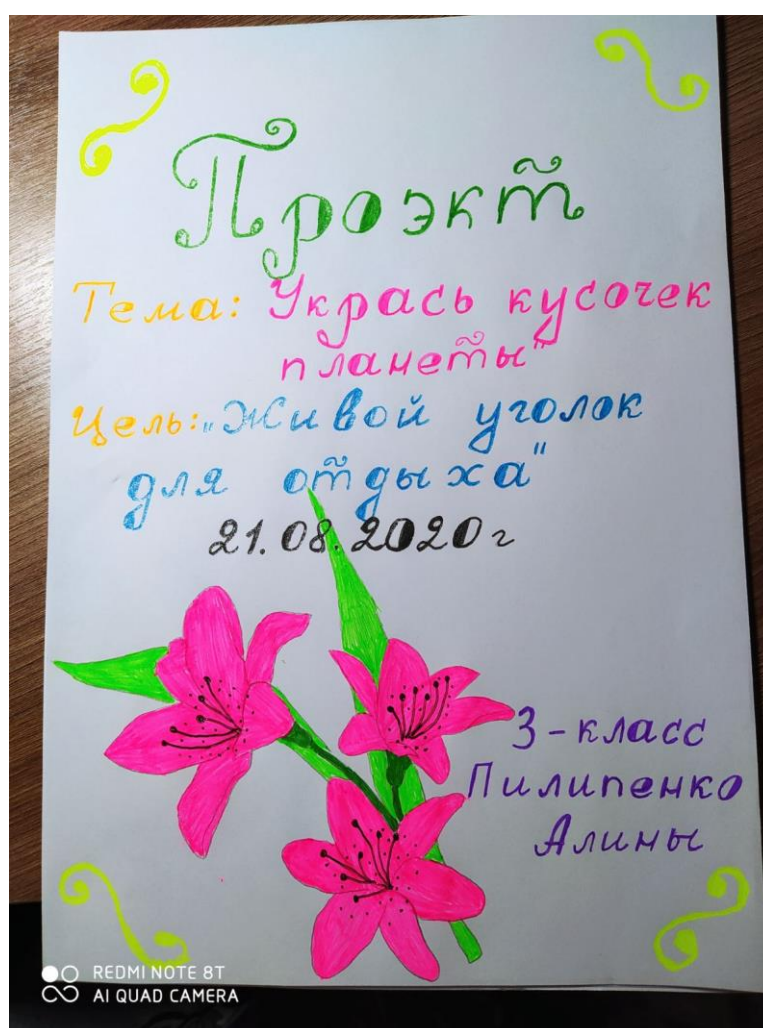 Проэкт
Тема: Укрась кусочек
планеты"
Цель: „Живой уголок
для отдыха"
21.08.2020г
3-класс
Пилипенко
Алины
REDMI NOTE 8T
AI QUAD CAMERA